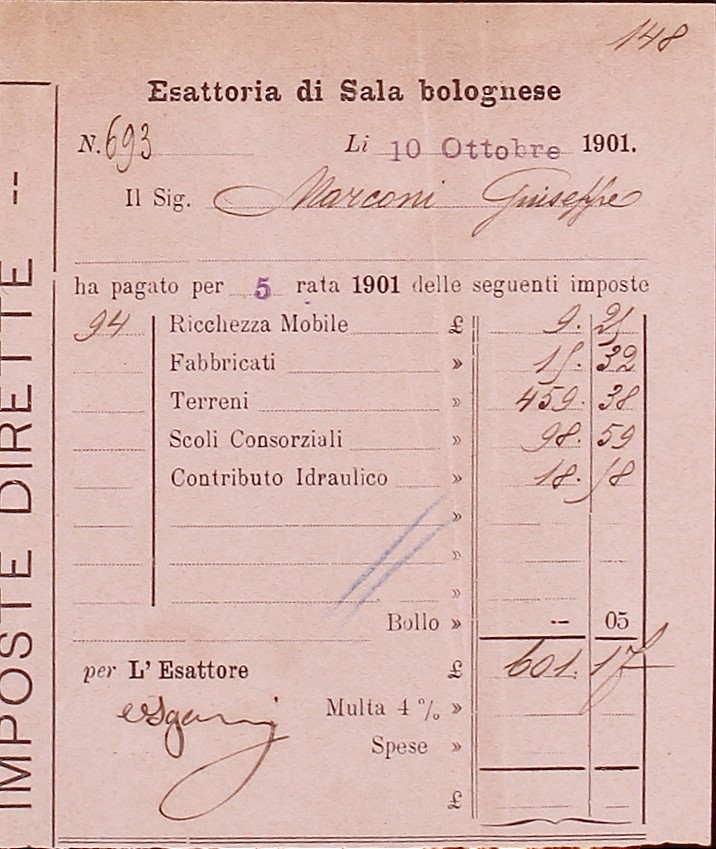 148
Esattoria di Sala bolognese
N. 693 Li 10 Ottobre 1901.
Il Sig. Marconi Giuseppe
ha pagato per 5 rata 1901 delle seguenti imposte
94 Ricchezza Mobile £ 9. 25
Fabbricati » 15. 32
Terreni » 459. 38
Scoli Consorziali » 98. 59
Contributo Idraulico » 18. 58
»
»
»
Bollo » -- 05
per L' Esattore £ 601. 17
Multa 4 % »
Spese »
£
IMPOSTE DIRETTE --